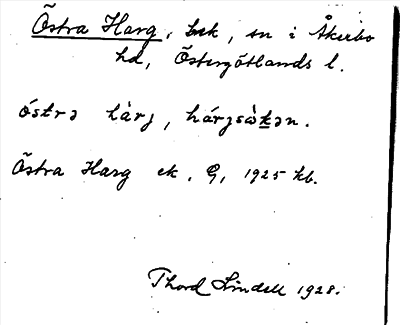 Östra Harg, bsk, sn i Åkerbo
hd, Östergötlands l.
óstrə hàrj, hárjsòkən.
Östra Harg ek. G, 1925 kb.
Thord Lindell 1928.